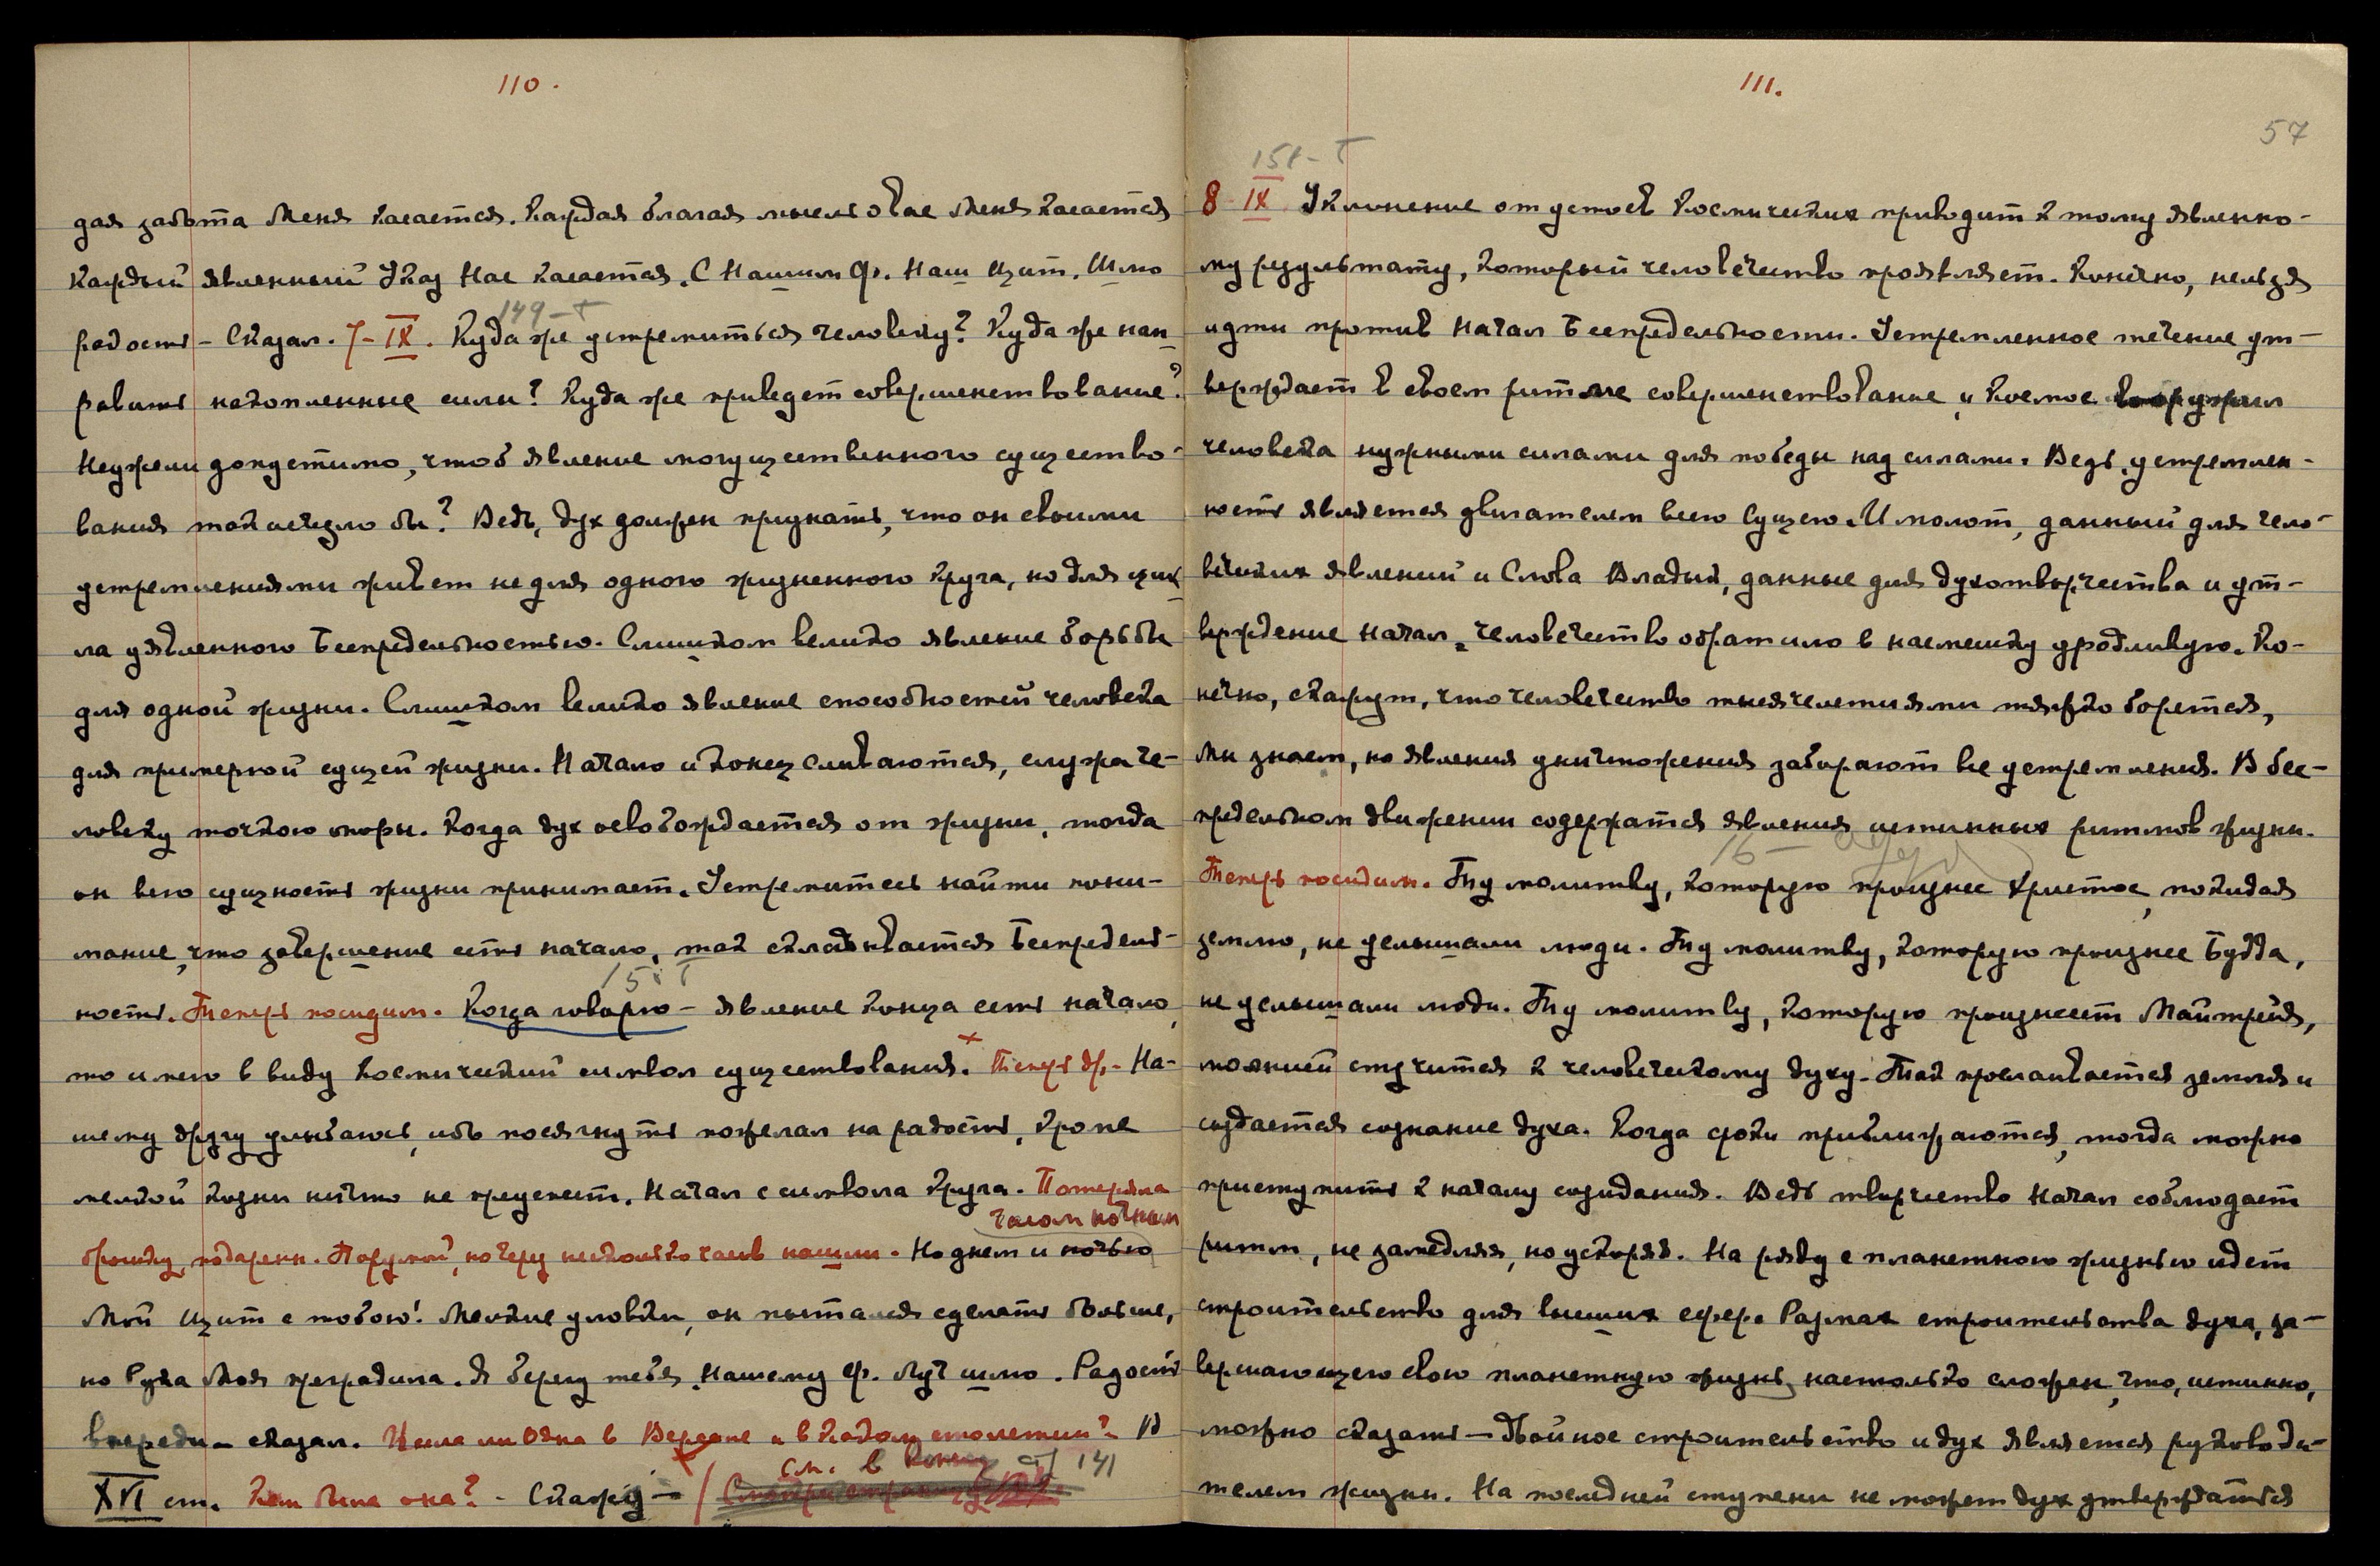 110.
дая забота Меня касается. Каждая благая мысль о вас Меня касается
каждый явленный Указ Нас касается. С Нашим Ф. Наш щит. Шлю
149-Т
радость - Сказал. 7-IX. Куда же устремиться человеку? Куда же нап
равить накопленные силы? Куда же приведет совершенствование?
Неужели допустимо, чтоб явление могущественного существо-
вания так исчезло бы? Ведь, дух должен признать, что он своими
устремлениями живет не для одного жизненного круга, но для цик
ла уявленного Беспредельностью. Слишком велико явление борьбы
для одной жизни. Слишком велико явление способностей человека
для примерной сущей жизни. Начало и конец сливаются, служа че-
ловеку точкою опоры. Когда дух освобождается от жизни, тогда
он всю сущность жизни принимает. Устремитесь найти пони-
мание, что завершение есть начало, так складывается Беспредель-
150 Т
ность. Теперь посидим. Когда говорю - явление конца есть начало,
то имею в виду космический символ существования. Теперь др. - На-
шему другу улыбаюсь, ибо посягнуть пожелал на радость, кроме
мелкой кизни ничто не преуспеет. Начал с символа круга. Потеряла
часом ночным
брошку, подарен. Порумой, но через несколько часов нашли. Но днем и ночью
Мой щит с тобою! Мелкие уловки, он пытался сделать больше,
но Рука Моя преградила. Я берегу тебя. Нашему Ф. Луч шлю. Радость
впереди - сказал. Жила ли Ояна в Вероне и в каком столетии? В
см. в конце ст 141
XVI ст. Кем была она? - Скажу - / Смотри страницу
111.
57
151-Т
8-IX Уклонение от устоев космических приводит к тому явленно-
му результату, который человечество проявляет. Конечно, нельзя
идти против Начал Беспредельности. Устремленное течение ут-
верждает в своем ритме совершенствование, и Космос вооружил
человека нужными силами для победы над силами. Ведь, устремлен-
ность является двигателем всего Сущего. И молот, данный для чело-
веческих явлений и Слова Владык, данные для духотворчества и ут-
верждение Начал, человечество обратило в насмешку уродливую. Ко-
нечно, скажут, что человечество тысячелетиями тяжко борется,
Мы знаем, но явления уничтожения забирают все устремления. В бес-
предельном движении содержатся явления истинных ритмов жизни.
Теперь посидим. Ту молитву, которую произнес Христос, покидая
землю, не услышали люди. Ту молитву, которую произнес Будда,
не услышали люди. Ту молитву, которую произнесет Майтрейя,
молнией стучится к человеческому духу. Так прослаивается земля и
создается сознание духа. Когда сроки приближаются, тогда можно
приступить к началу созидания. Ведь творчество Начал соблюдает
ритм, не замедляя, но ускоряя. На ряду с планетною жизнью идет
строительство для высших сфер. Размах строительства духа, за-
вершающего свою планетную жизнь, настолько сложен, что, истинно,
можно сказать - Двойное строительство и дух является руководи-
телем жизни. На последней ступени не может дух утверждаться